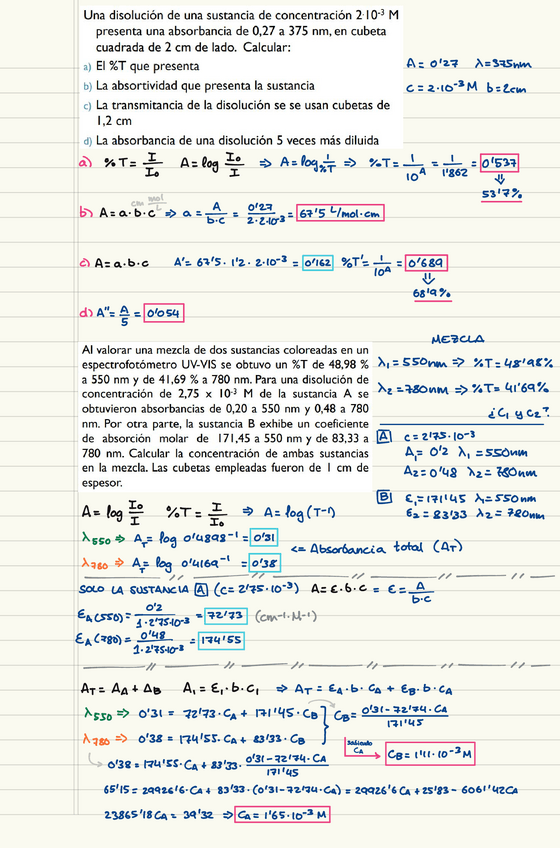 Una disolución de una sustancia de concentración 2·10⁻³ M
presenta una absorbancia de 0,27 a 375 nm, en cubeta
cuadrada de 2 cm de lado. Calcular:
a) El %T que presenta
b) La absortividad que presenta la sustancia
c) La transmitancia de la disolución se se usan cubetas de
1,2 cm
d) La absorbancia de una disolución 5 veces más diluida
A = 0'27 λ=375nm
c = 2·10⁻³ M b=2cm
a) %T = I/I₀ A = log I₀/I ⇒ A = log 1/%T ⇒ %T = 1/10^A = 1/1'862 = 0'537
⇓
53'7%
b) A = a·b·c cm mol/L ⇒ a = A/b·c = 0'27/2·2·10⁻³ = 67'5 L/mol·cm
c) A = a·b·c A' = 67'5 · 1'2 · 2·10⁻³ = 0'162 %T' = 1/10^A = 0'689
⇓
68'9%
d) A'' = A/5 = 0'054
Al valorar una mezcla de dos sustancias coloreadas en un
espectrofotómetro UV-VIS se obtuvo un %T de 48,98 %
a 550 nm y de 41,69 % a 780 nm. Para una disolución de
concentración de 2,75 x 10⁻³ M de la sustancia A se
obtuvieron absorbancias de 0,20 a 550 nm y 0,48 a 780
nm. Por otra parte, la sustancia B exhibe un coeficiente
de absorción molar de 171,45 a 550 nm y de 83,33 a
780 nm. Calcular la concentración de ambas sustancias
en la mezcla. Las cubetas empleadas fueron de 1 cm de
espesor.
MEZCLA
λ₁ = 550nm ⇒ %T = 48'98%
λ₂ = 780nm ⇒ %T = 41'69%
¿C₁ y C₂?
A c = 2'75·10⁻³
A₁ = 0'2 λ₁ = 550nm
A₂ = 0'48 λ₂ = 780nm
B ε₁ = 171'45 λ = 550nm
ε₂ = 83'33 λ₂ = 780nm
A = log I₀/I %T = I/I₀ ⇒ A = log(T-1)
λ₅₅₀ ⇒ A_T = log 0'4898⁻¹ = 0'31
<= Absorbancia total (A_T)
λ₇₈₀ ⇒ A_T = log 0'4169⁻¹ = 0'38
SOLO LA SUSTANCIA A (c = 2'75·10⁻³) A = ε·b·c = ε = A/b·c
ε_A(550) = 0'2/1·2'75·10⁻³ = 72'73 (cm-1·M-1)
ε_A(780) = 0'48/1·2'75·10⁻³ = 174'55
A_T = A_A + A_B A₁ = ε₁·b·c₁ ⇒ A_T = ε_A·b·C_A + ε_B·b·C_A
λ₅₅₀ ⇒ 0'31 = 72'73·C_A + 171'45·C_B C_B = 0'31-72'74·C_A/171'45
λ₇₈₀ ⇒ 0'38 = 174'55·C_A + 83'33·C_B
sabiendo C_A → C_B = 1'11·10⁻³ M
0'38 = 174'55·C_A + 83'33· 0'31-72'74·C_A/171'45
65'15 = 29926'6·C_A + 83'33·(0'31-72'74·C_A) = 29926'6 C_A + 25'83 - 6061'42 C_A
23865'18 C_A = 39'32 ⇒ C_A = 1'65·10⁻³ M